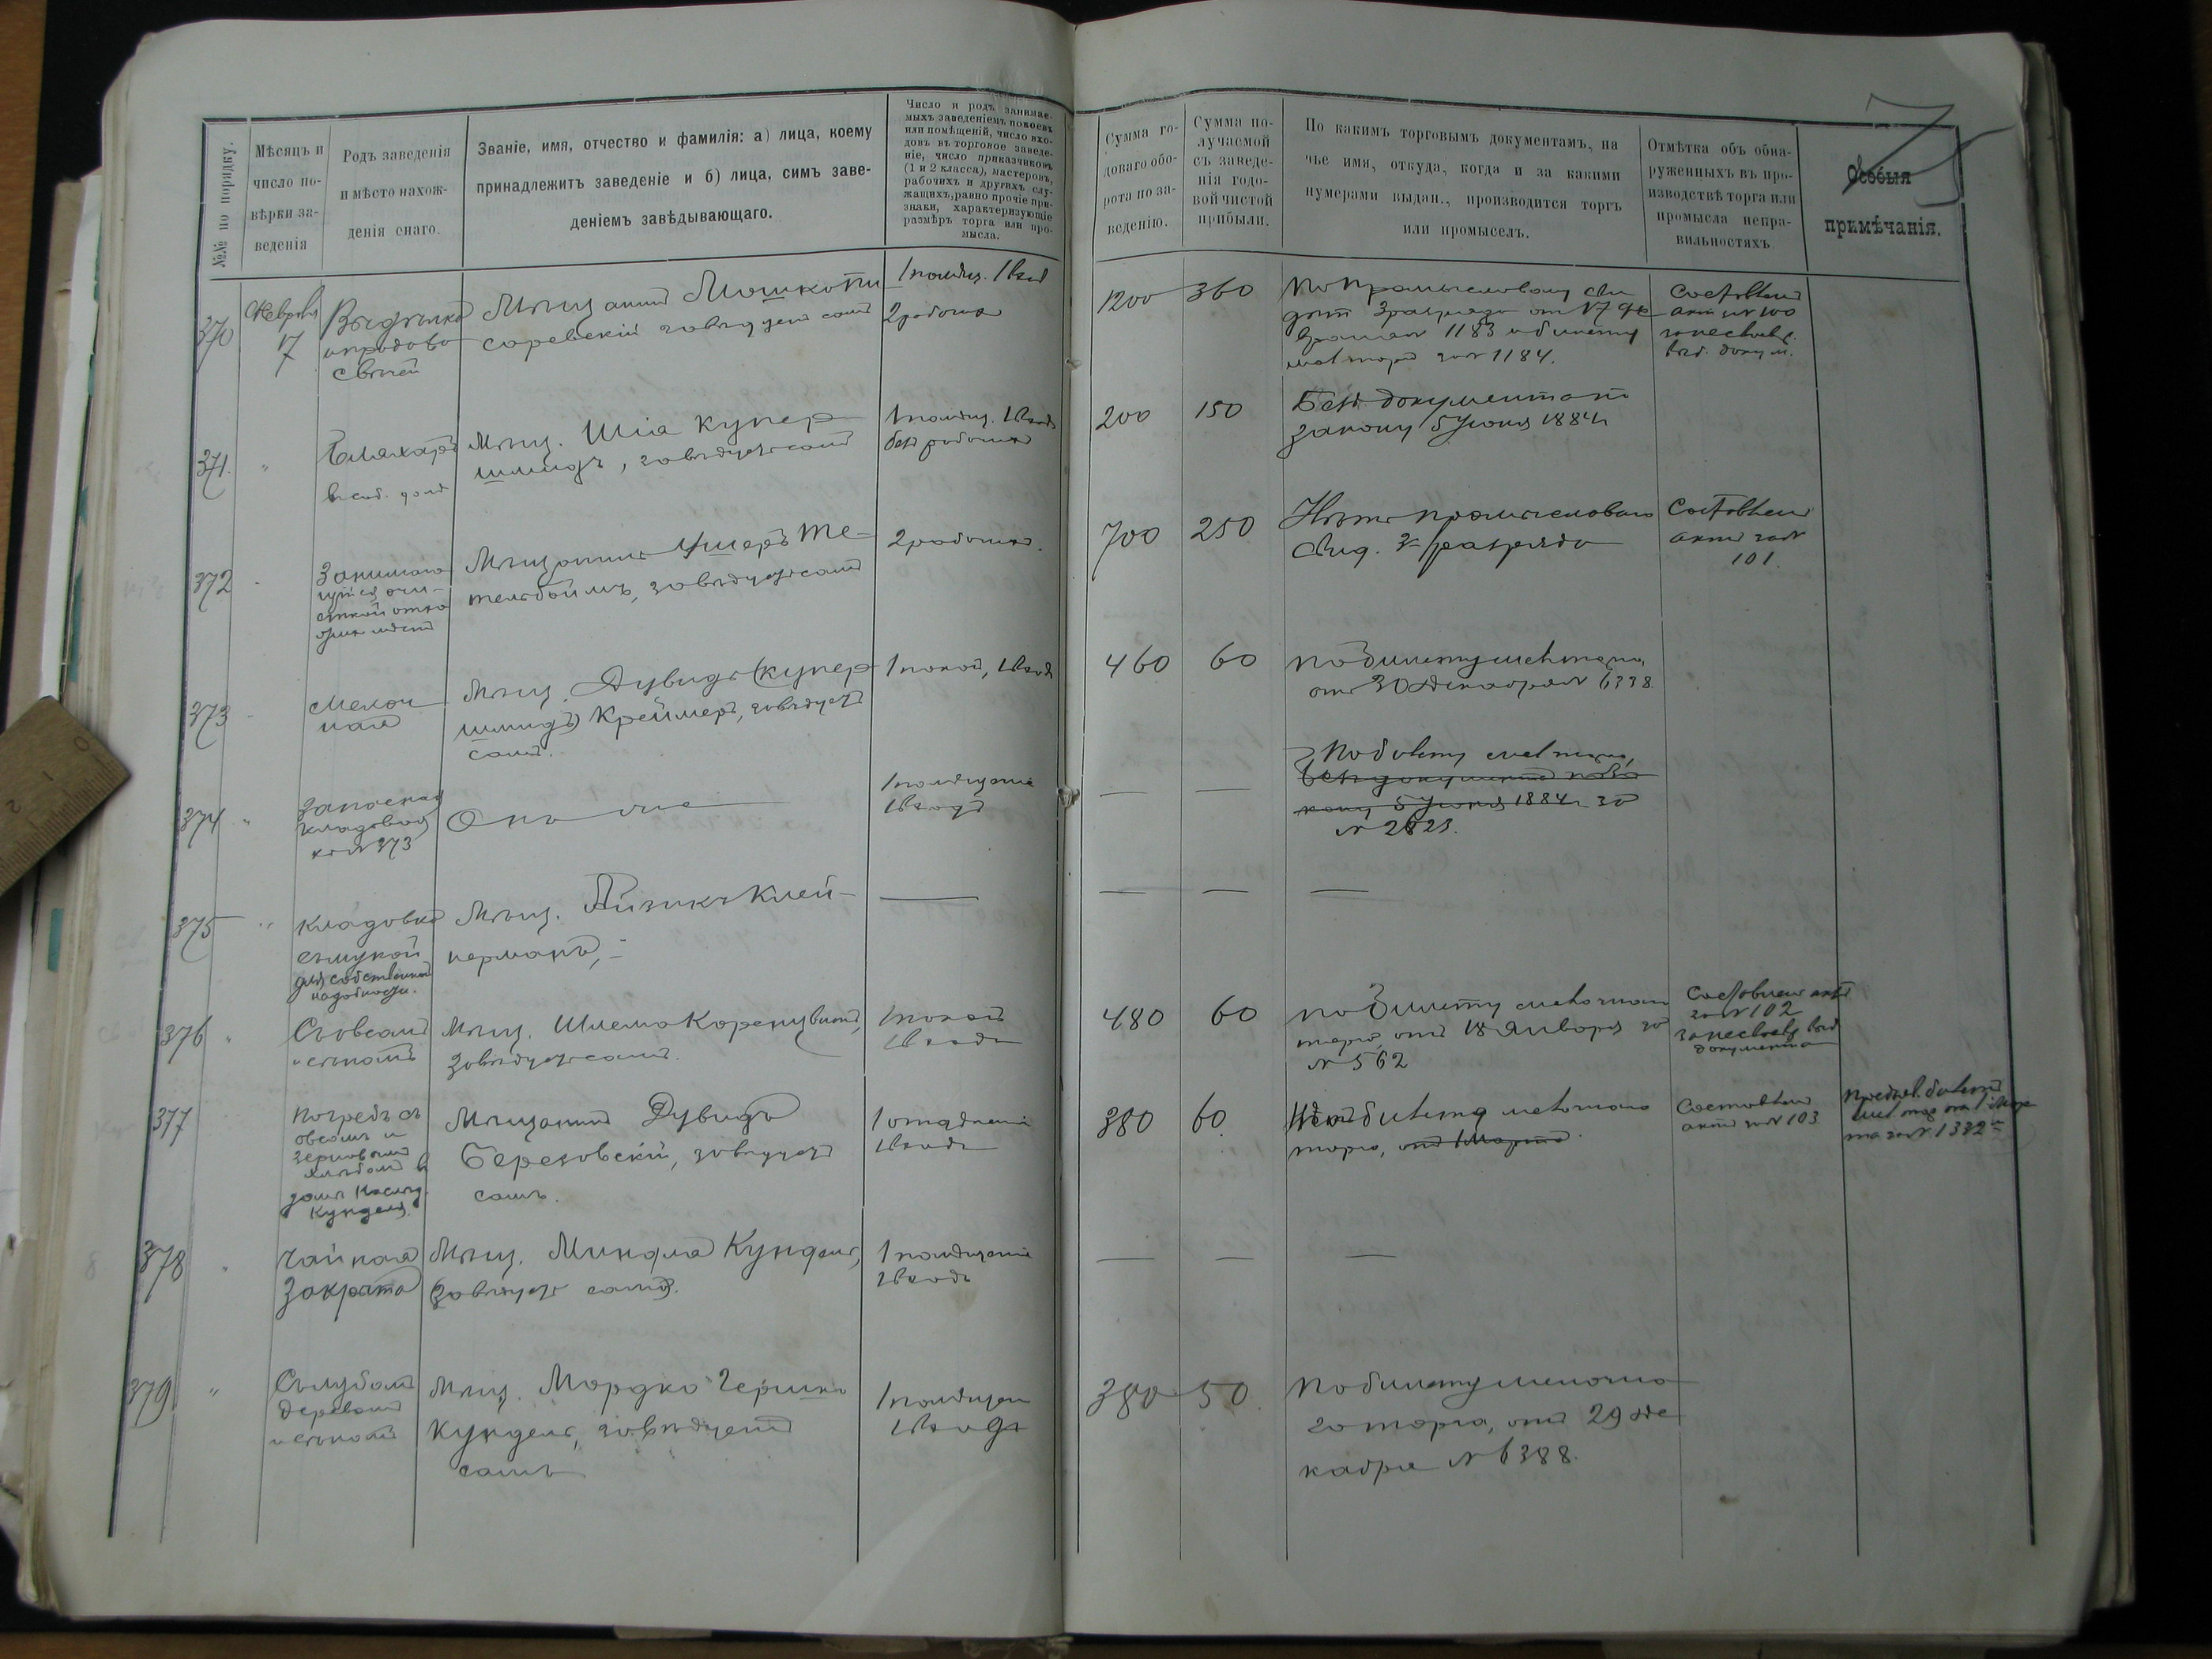 №№ по порядку.
Мѣсяцъ и
число по-
вѣрки за-
веденія
Родъ заведенія
и мѣсто нахож-
денія онаго.
Званіе, имя, отчество и фамилія: а) лица, коему
принадлежитъ заведеніе и б) лица, симъ заве-
деніемъ завѣдывающаго.
Число и родъ занимае-
мыхъ заведеніемъ покоевъ
или помѣщеній, число вхо-
довъ въ торговое заведе-
ніе, число приказчиковъ
(1 и 2 класса), мастеровъ,
рабочихъ и другихъ слу-
жащихъ, равно прочіе при-
знаки, характеризующіе
размѣръ торга или про-
мысла.
Сумма го-
доваго обо-
рота по за-
веденію.
Сумма по-
лучаемой
съ заведе-
нія годо-
вой чистой
прибыли.
По какимъ торговымъ документамъ, на
чье имя, откуда, когда и за какими
нумерами выдан., производится торгъ
или промыселъ.
Отмѣтка объ обна-
руженныхъ въ про-
изводствѣ торга или
промысла непра-
вильностяхъ.
Особыя
примѣчанія.
370
Февраля
17
Выдѣлка
и продажа
свѣчей
Мѣщанинъ
заведуетъ самъ
1 помѣщ. 1 вход
2 рабочихъ
1200
360
По промысловому сви
дѣт 3 разряда от 17 Фе
враля № 1183 и билету
мел торга за № 1184.
Составленъ
актъ за № 100
докум.
371.
"
въ соб. домѣ
Мѣщ. Шія Купер
шмидъ, завѣдуетъ самъ
1 помѣщ. 1 входъ
без рабочихъ
200
150
Безъ документа по
закону 5 Іюня 1884 г
372
"
Занимаю
щійся очи-
сткой отхо
жихъ мѣстъ
Мѣщанинъ Ушеръ Те-
тельбоймъ, завѣдуетъ самъ
2 рабочихъ.
700
250
Нѣтъ промысловаго
свид. 3 разряда
Составленъ
актъ за №
101.
373
"
Мелоч
ная
Мѣщ. Дувидъ (Купер
шмидъ) Креймеръ, завѣдуетъ
самъ.
1 покой, 1 входъ
460
60
по билету мел торга,
отъ 30 Декабря № 6338.
374
"
Запасная
кладовая
къ № 373
Онъ же
1 помѣщеніе
1 входъ
—
—
По билету мел торга,
Безъ документа по за
кону 5 Іюня 1884 г за
№ 2823.
375
"
Кладовка
съ мукой
для собственной
надобности.
Мѣщ. Айзикъ Клей-
нерманъ, -
—
—
—
—
376
"
Съ овсомъ
и сѣномъ
Мѣщ. Шлема Коренцвитъ,
Завѣдуетъ самъ.
1 покой
1 входъ
480
60
по билету мелочнаго
торга отъ 18 Января за
№ 562
Составленъ актъ
за № 102
документа
377
Погребъ съ
овсомъ и
зерновымъ
хлѣбомъ въ
домѣ
Кунделя.
Мѣщанинъ Дувидъ
Березовскій, завѣдуетъ
самъ.
1 отдѣленіе
1 входъ
380
60.
Нѣтъ билета мелочнаго
торга, отъ 1 Марта.
Составленъ
актъ за № 103
Предъяв. билетъ
мел тор от 1 Мар
та за № 1332
378
"
Чайная
Закрыта
Мѣщ. Миндля Кундель,
Завѣдуетъ сама.
1 помѣщеніе
2 входъ
—
—
—
379
"
Съ
деревомъ
и сѣномъ
Мѣщ. Мордко Гершко
Кундель, завѣдуетъ
самъ
1 помѣщен
1 входъ
380
50.
По билету мелочна
го торга, отъ 29 Де
кабря № 6388.